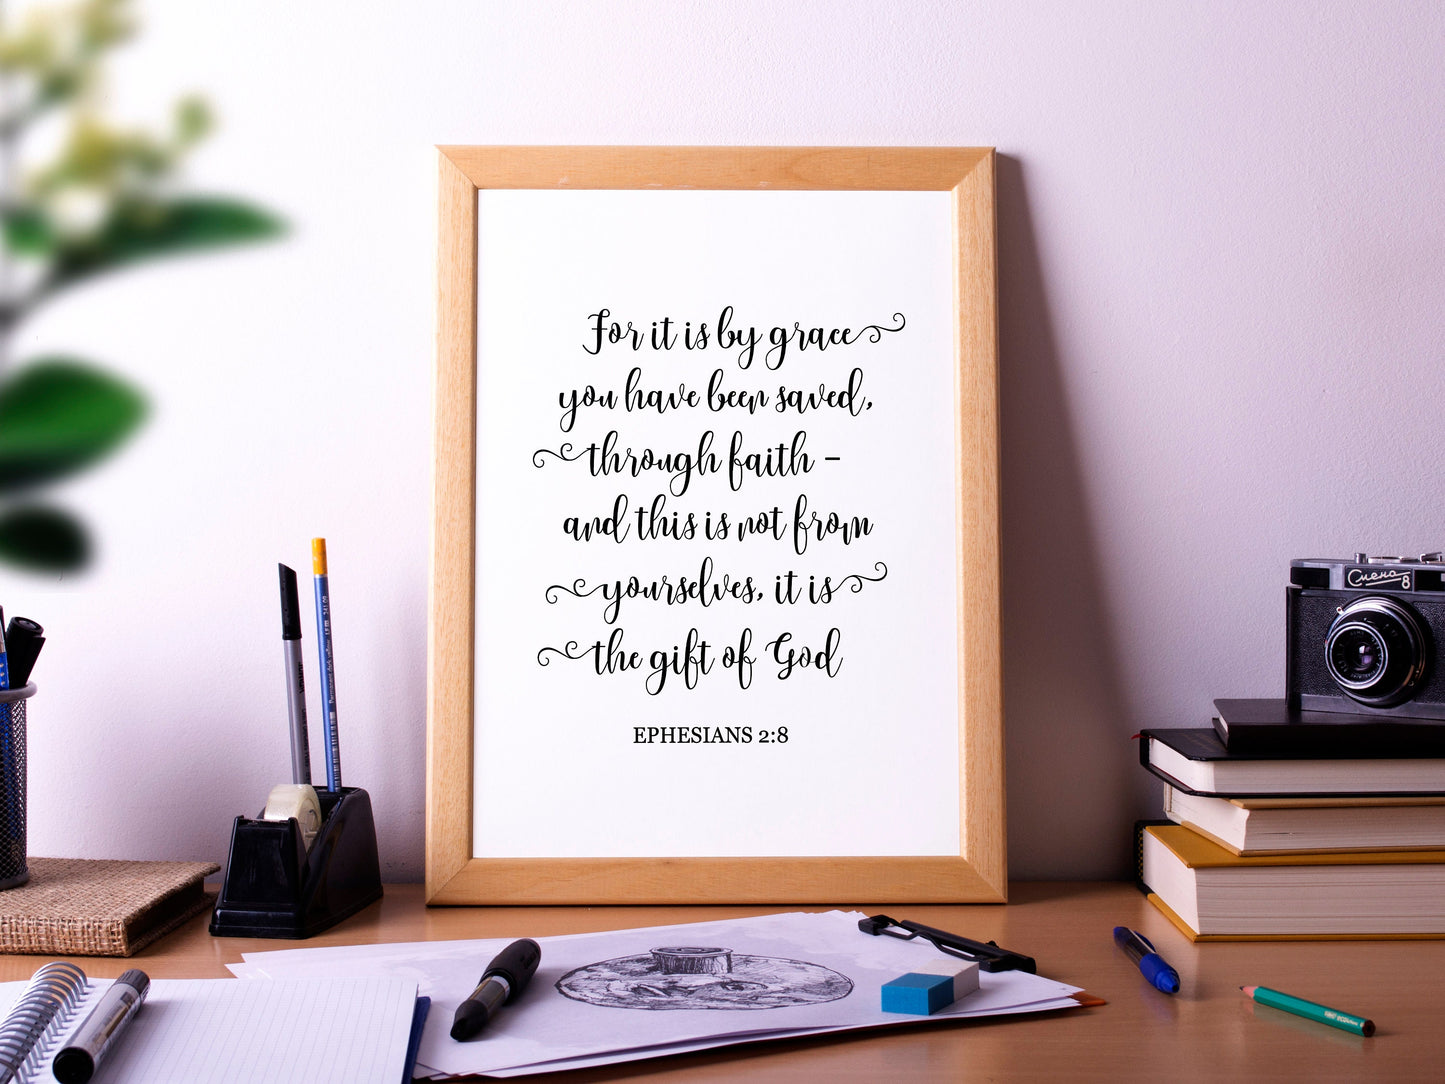 For it is by grace
you have been saved,
through faith –
and this is not from
yourselves, it is
the gift of God
EPHESIANS 2:8
Смена
8